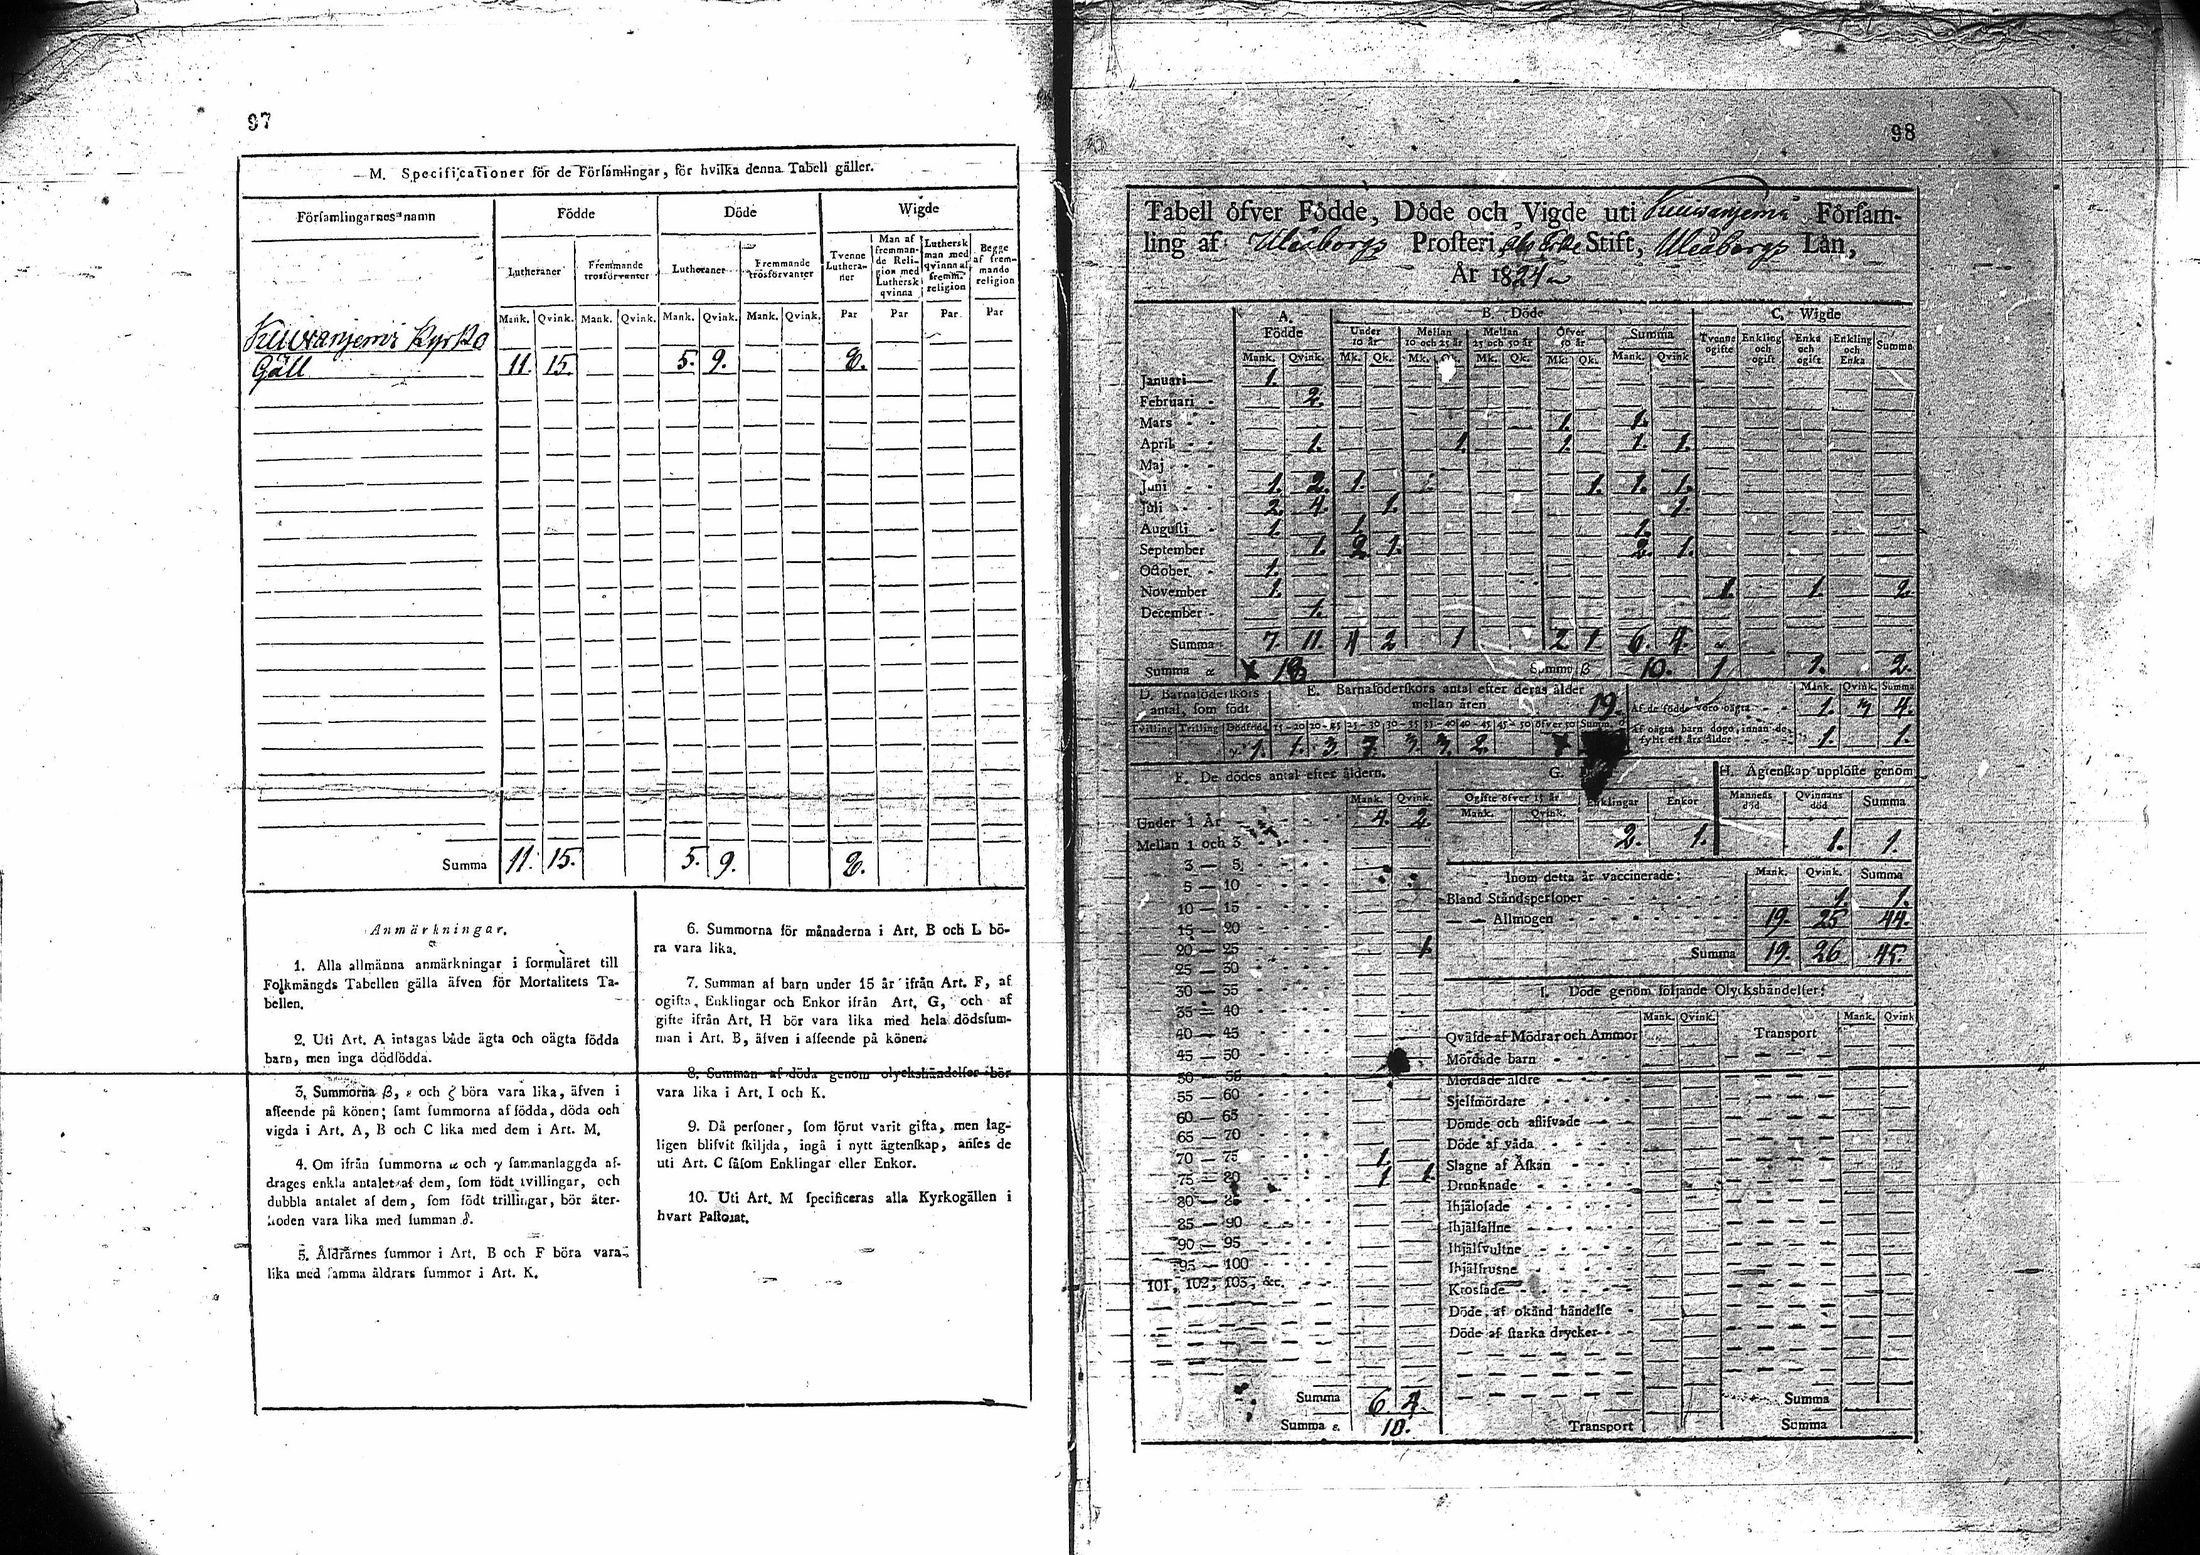 97
M. Specificationer för de Församlingar, för hvilka denna Tabell gäller.
Församlingarnes namn Födde Döde Wigde
Lutheraner Fremmande trosförvanter Lutheraner Fremmande trosförvanter Tvenne Lutheraner Man af fremmande Religion med Luthersk qvinna Luthersk man med qvinna af fremm. religion Begge af fremmande religion
Mank. Qvink. Mank. Qvink. Mank. Qvink. Mank. Qvink. Par Par Par Par
Kuivanjemi Kyrko
Gäll 11. 15. 5. 9. 8.
Summa 11. 15. 5. 9. 8.
Anmärkningar.
1. Alla allmänna anmärkningar i formuläret till
Folkmängds Tabellen gälla äfven för Mortalitets Ta-
bellen.
2. Uti Art. A intagas både ägta och oägta födda
barn, men inga dödfödda.
3. Summorna β, ε och ζ böra vara lika, äfven i
affeende på könen; samt summorna af födda, döda och
vigda i Art. A, B och C lika med dem i Art. M.
4. Om ifrån summorna α och γ sammanlaggda af-
drages enkla antalet af dem, som födt tvillingar, och
dubbla antalet af dem, som födt trillingar, bör åter-
stoden vara lika med summan δ.
5. Åldrarnes summor i Art. B och F böra vara
lika med samma åldrars summor i Art. K.
6. Summorna för månaderna i Art. B och L bö-
ra vara lika.
7. Summan af barn under 15 år ifrån Art. F, af
ogifta, Enklingar och Enkor ifrån Art. G, och af
gifte ifrån Art. H bör vara lika med hela dödsum-
man i Art. B, äfven i affeende på könen.
8. Summan af döda genom olyckshändelser bör
vara lika i Art. I och K.
9. Då personer, som förut varit gifta, men lag-
ligen blifvit skiljda, ingå i nytt ägtenskap, anses de
uti Art. C såsom Enklingar eller Enkor.
10. Uti Art. M specificeras alla Kyrkogällen i
hvart Pastorat.
98
Tabell öfver Födde, Döde och Vigde uti Kuivanjemi Försam-
ling af Uleåborgs Prosteri, Åbo Stift, Uleåborgs Län,
År 1824
A. Födde B. Döde C. Wigde
Under 10 år Mellan 10 och 25 år Mellan 25 och 50 år Öfver 50 år Summa Tvenne ogifte Enkling och ogift Enka och ogift Enkling och Enka Summa
Mank. Qvink. Mk. Qk. Mk. Qk. Mk. Qk. Mk. Qk. Mank. Qvink.
Januari 1.
Februari 2.
Mars 1. 1.
April 1. 1. 1. 1. 1.
Maj
Juni 1. 2. 1. 1. 1. 1.
Juli 2. 4. 1. 1.
Augusti 1. 1. 1.
September 1. 2. 1. 2. 1.
October 1.
November 1. 1. 1. 2.
December 1.
Summa 7. 11. 4 2 1 2 1 6. 4.
Summa α 18 Summa β 10. 1 1. 2.
D. Barnaföderskors antal, som födt E. Barnaföderskors antal efter deras ålder mellan åren 19. Mank. Qvink. Summa
Tvilling Trilling Dödfödde 15-20 20-25 25-30 30-35 35-40 40-45 45-50 öfver 50 Summ.
1. 1. 3. 7. 3. 3. 2.
Af de födde voro oägta 1. 3 4.
Af oägta barn dogo, innan de fyllt ett års ålder 1. 1.
F. De dödes antal efter åldern.
Mank. Qvink.
Under 1 År 4. 2.
Mellan 1 och 3
3 — 5
5 — 10
10 — 15
15 — 20
20 — 25 1.
25 — 30
30 — 35
35 — 40
40 — 45
45 — 50
50 — 55
55 — 60
60 — 65
65 — 70
70 — 75 1.
75 — 80 1 1.
80 — 85
85 — 90
90 — 95
95 — 100
101, 102, 103, &c.
Summa 6. 4.
Summa ε. 10.
G.
Ogifte öfver 15 år Enklingar Enkor
Mank. Qvink.
2. 1.
H. Ägtenskap upplöste genom
Mannens död Qvinnans död Summa
1. 1.
Inom detta år vaccinerade: Mank. Qvink. Summa
Bland Ståndspersoner 1. 1.
— — Allmogen 19. 25 44.
Summa 19. 26 45.
I. Döde genom följande Olyckshändelser:
Mank. Qvink. Mank. Qvink
Qväfde af Mödrar och Ammor Transport
Mördade barn
Mördade äldre
Sjelfmördare
Dömde och aflifvade
Döde af våda
Slagne af Åskan
Drunknade
Ihjälosade
Ihjälfallne
Ihjälsvultne
Ihjälfrusne
Krossade
Döde af okänd händelse
Döde af starka drycker
Summa
Transport Summa